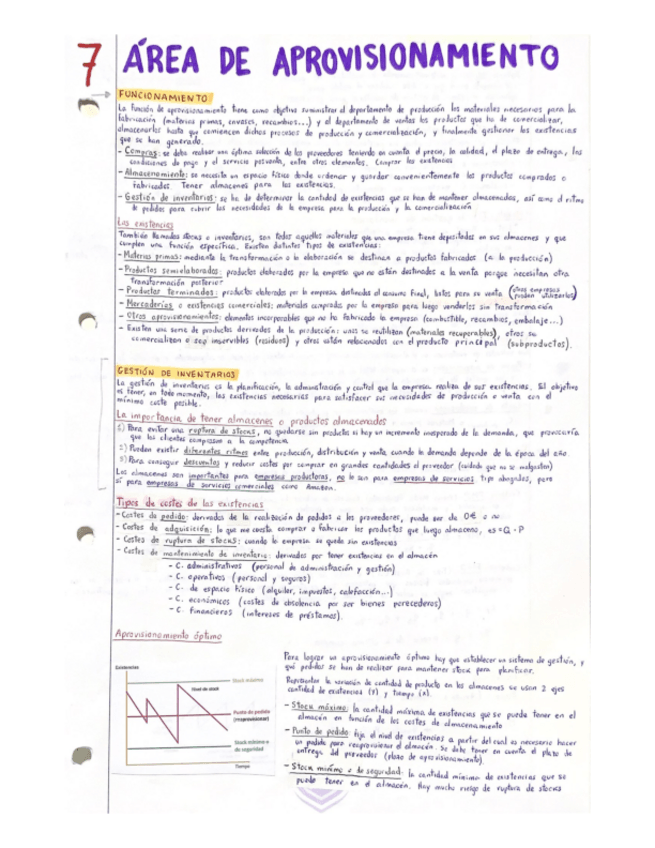 7 ÁREA DE APROVISIONAMIENTO
FUNCIONAMIENTO
La función de aprovisionamiento tiene como objetivo suministrar al departamento de producción los materiales necesarios para la
fabricación (materias primas, envases, recambios...) y al departamento de ventas los productos que ha de comercializar,
almacenarlos hasta que comiencen dichos procesos de producción y comercialización, y finalmente gestionar las existencias
que se han generado.
- Compras: se debe realizar una óptima selección de los proveedores teniendo en cuenta el precio, la calidad, el plazo de entrega, las
condiciones de pago y el servicio postventa, entre otros elementos. Comprar las existencias
- Almacenamiento: se necesita un espacio físico donde ordenar y guardar convenientemente los productos comprados o
fabricados. Tener almacenes para las existencias.
- Gestión de inventarios: se ha de determinar la cantidad de existencias que se han de mantener almacenadas, así como el ritmo
de pedidos para cubrir las necesidades de la empresa para la producción y la comercialización
Las existencias
También llamadas stocks o inventarios, son todos aquellos materiales que una empresa tiene depositados en sus almacenes y que
cumplen una función específica. Existen distintos tipos de existencias:
- Materias primas: mediante la transformación o la elaboración se destinan a productos fabricados (a la producción)
- Productos semielaborados: productos elaborados por la empresa que no están destinados a la venta porque necesitan otra
transformación posterior
- Productos terminados: productos elaborados por la empresa destinados al consumo final, listos para su venta (otras empresas pueden utilizarlos)
- Mercaderías o existencias comerciales: materiales comprados por la empresa para luego venderlos sin transformación
- Otros aprovisionamientos: elementos incorporables que no ha fabricado la empresa (combustible, recambios, embalaje...)
- Existen una serie de productos derivados de la producción: unos se reutilizan (materiales recuperables), otros se
comercializan o son inservibles (residuos) y otros están relacionados con el producto principal (subproductos).
GESTIÓN DE INVENTARIOS
La gestión de inventarios es la planificación, la administración y control que la empresa realiza de sus existencias. El objetivo
es tener, en todo momento, las existencias necesarias para satisfacer sus necesidades de producción o venta con el
mínimo coste posible.
La importancia de tener almacenes o productos almacenados
1) Para evitar una ruptura de stocks, no quedarse sin productos si hay un incremento inesperado de la demanda, que provocaría
que los clientes comprasen a la competencia
2) Pueden existir diferentes ritmos entre producción, distribución y venta cuando la demanda depende de la época del año.
3) Para conseguir descuentos y reducir costes por comprar en grandes cantidades al proveedor (cuidado que no se malgasten)
Los almacenes son importantes para empresas productoras, no lo son para empresas de servicios tipo abogados, pero
sí para empresas de servicios comerciales como Amazon.
Tipos de costes de las existencias
- Costes de pedido: derivados de la realización de pedidos a los proveedores, puede ser de 0€ a ∞
- Costes de adquisición: lo que me cuesta comprar o fabricar los productos que luego almaceno, es = Q · P
- Costes de ruptura de stocks: cuando la empresa se queda sin existencias
- Costes de mantenimiento de inventario: derivados por tener existencias en el almacén
- C. administrativos (personal de administración y gestión)
- C. operativos (personal y seguros)
- C. de espacio físico (alquiler, impuestos, calefacción...)
- C. económicos (costes de obsolencia por ser bienes perecederos)
- C. financieros (intereses de préstamos).
Aprovisionamiento óptimo
Existencias
Stock máximo
Nivel de stock
Punto de pedido
(reaprovisionar)
Stock mínimo o
de seguridad
Tiempo
Para lograr un aprovisionamiento óptimo hay que establecer un sistema de gestión, y
qué pedidos se han de realizar para mantener stock para planificar.
Representar la variación de cantidad de producto en los almacenes se usan 2 ejes
cantidad de existencias (Y) y tiempo (X).
- Stock máximo: la cantidad máxima de existencias que se puede tener en el
almacén en función de los costes de almacenamiento
- Punto de pedido: fija el nivel de existencias a partir del cual es necesario hacer
un pedido para reaprovisionar el almacén. Se debe tener en cuenta el plazo de
entrega del proveedor (plazo de aprovisionamiento)
- Stock mínimo o de seguridad: la cantidad mínima de existencias que se
puede tener en el almacén. Hay mucho riesgo de ruptura de stocks